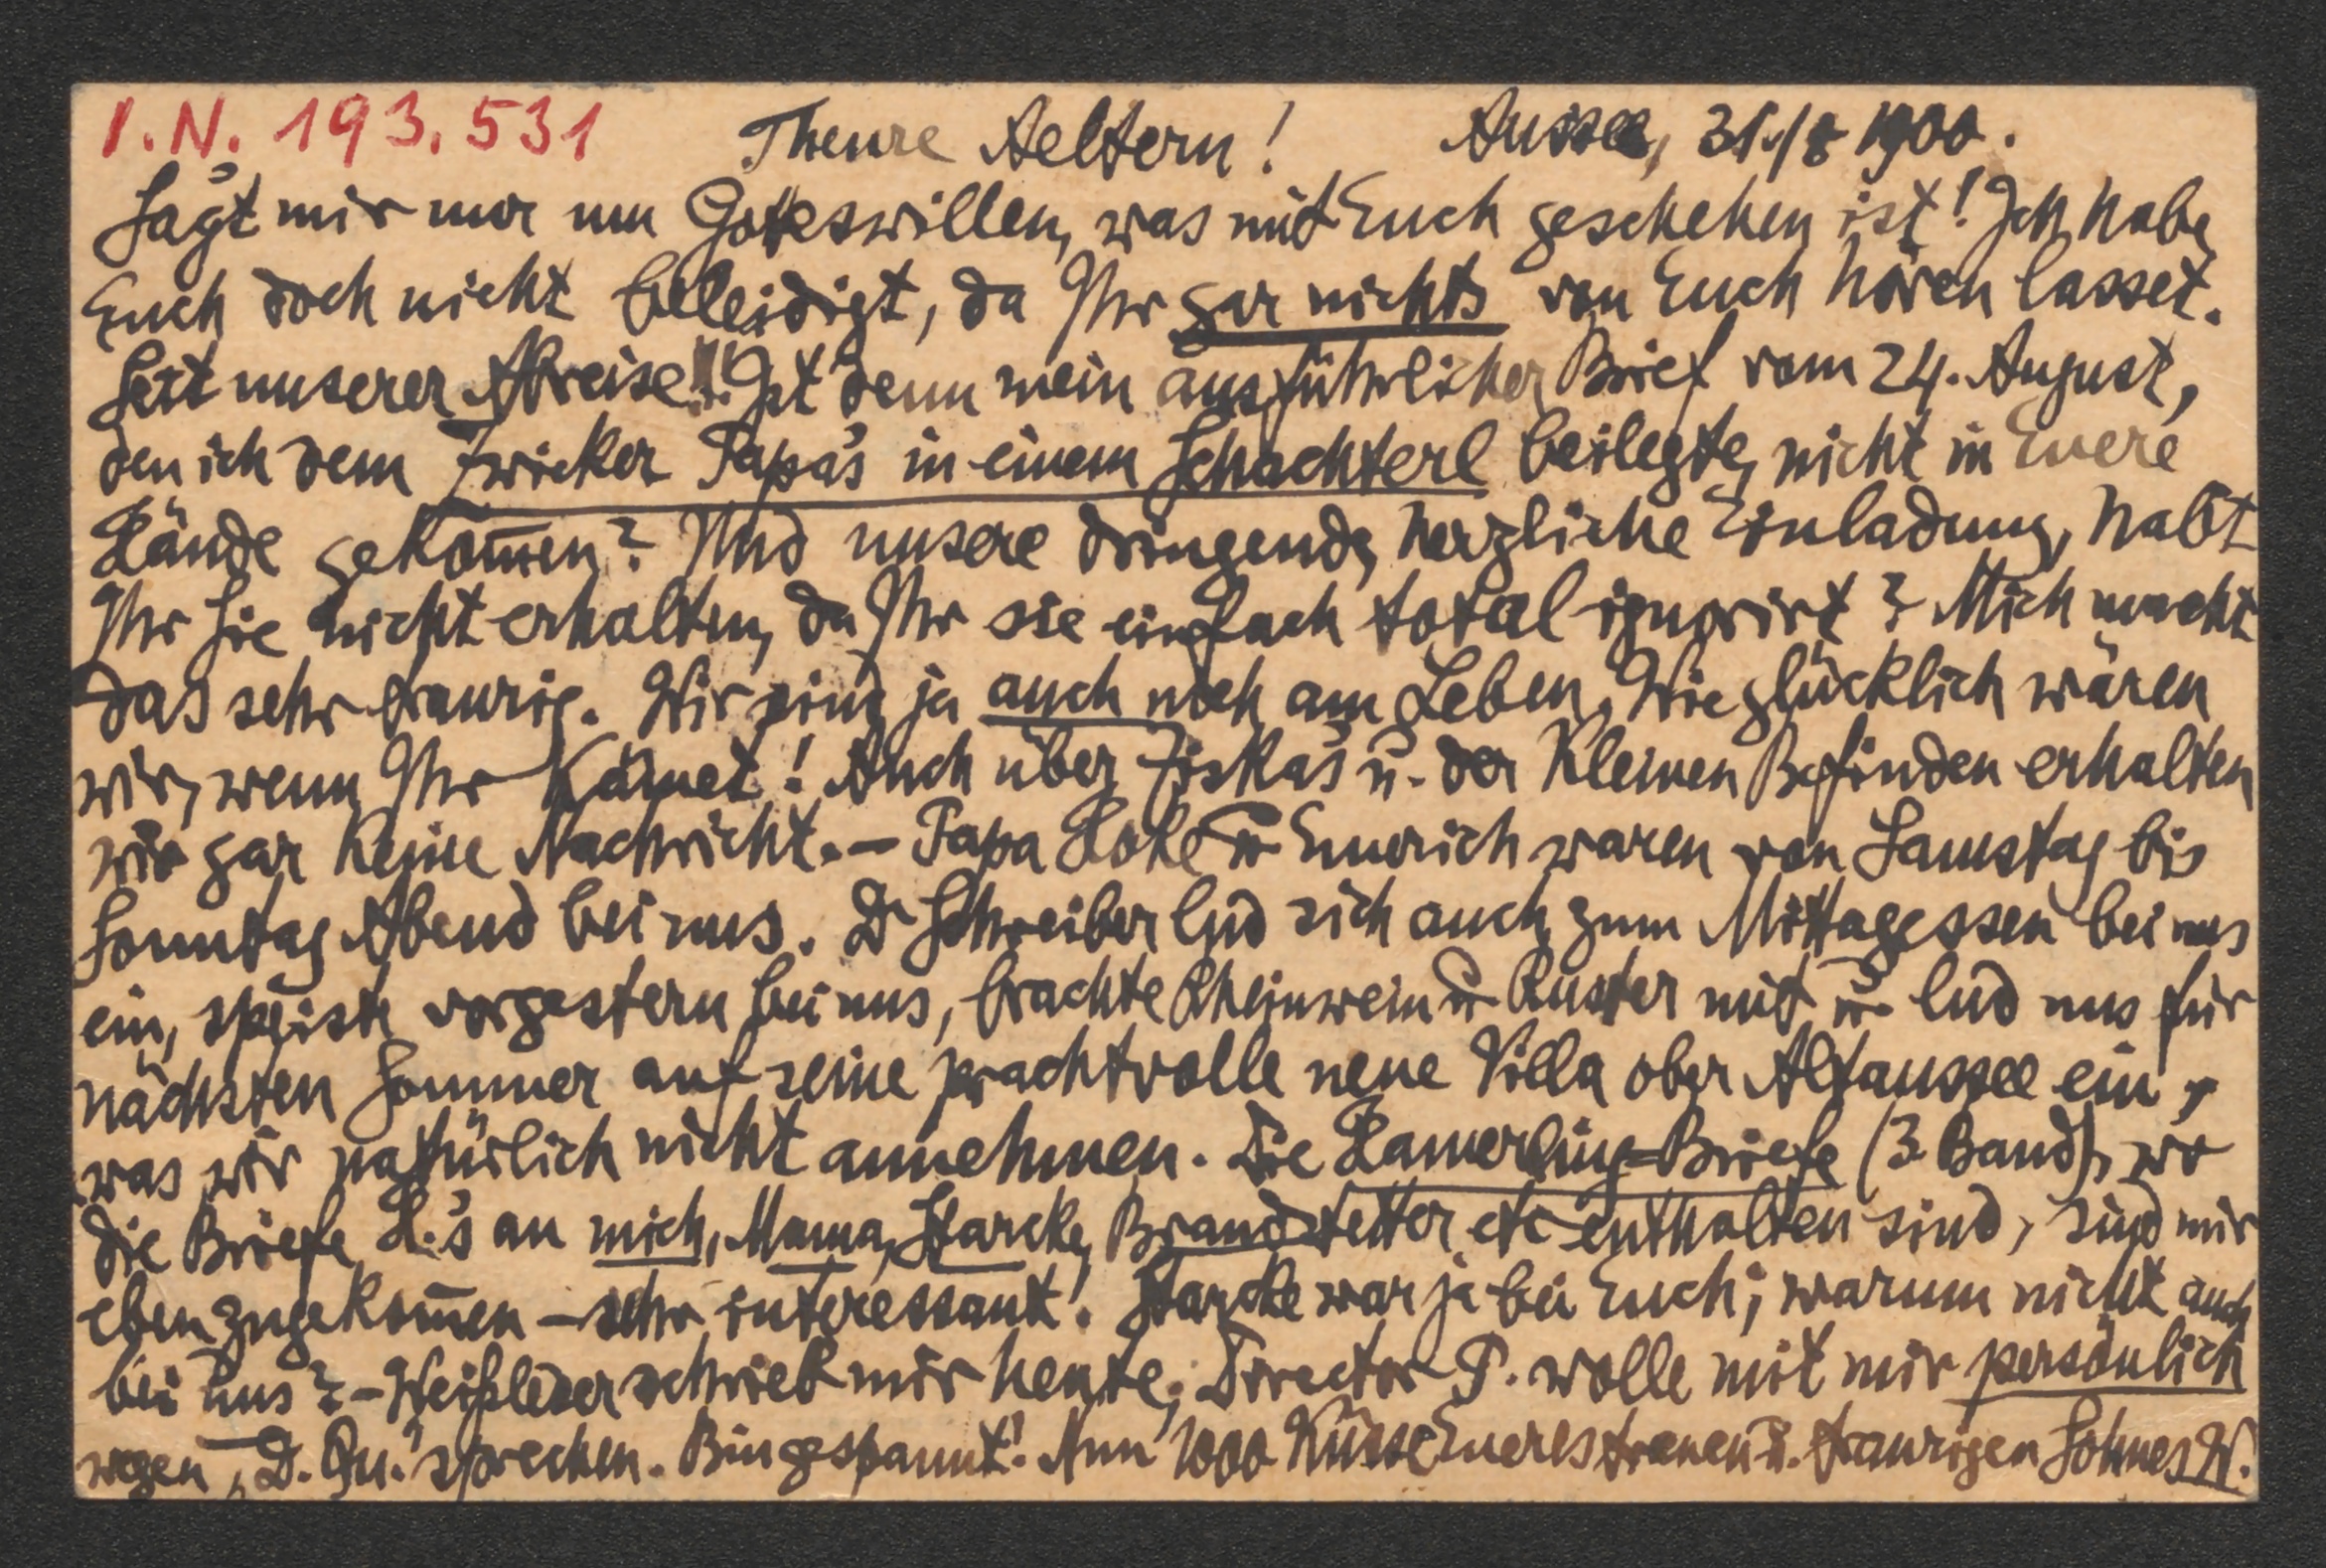 I.N. 193.531 Theure Aeltern! Aussee, 31./8 1900.
Sagt mir nur um Gotteswillen, was mit Euch geschehen ist! Ich habe
Euch doch nicht beleidigt, da Ihr gar nichts von Euch hören lasset.
Seit unserer Abreise!! Ist denn mein ausführlicher Brief vom 24. August,
den ich dem Zwicker Papa's in einem Schachterl beilegte, nicht in Euere
Hände gekom̅en? Und unsere dringende, herzliche Einladung, habt
Ihr Sie nicht erhalten, da Ihr sie einfach total ignorirt? Mich macht
das sehr traurig. Wir sind ja auch noch am Leben. Wie glücklich wären
wir, wenn Ihr kämet! Auch über Ziskas u. der Kleinen Befinden erhalten
wir gar keine Nachricht. – Papa Hoke u Emerich waren von Samstag bis
Sonntag Abend bei uns. Dr Schreiber lud sich auch zum Mittagessen bei uns
ein, speiste vorgestern bei uns, brachte Rheinwein u Ruster mit u lud uns für
nächsten Sommer auf seine prachtvolle neue Villa ober Altaussee ein,
was wir natürlich nicht annehmen. Die Hamerling-Briefe (3. Band), wo
die Briefe H.'s an mich, Mama, Starcke, Brandstetter etc enthalten sind, sind mir
eben zugekom̅en – sehr interessant! Starcke war ja bei Euch; warum nicht auch
bei uns? – Weißleder schrieb mir heute, Director P. wolle mit mir persönlich
wegen „D. Qu." sprechen. Bin gespannt! Nun 1000 Küsse Eueres treuen u. traurigen Sohnes W.